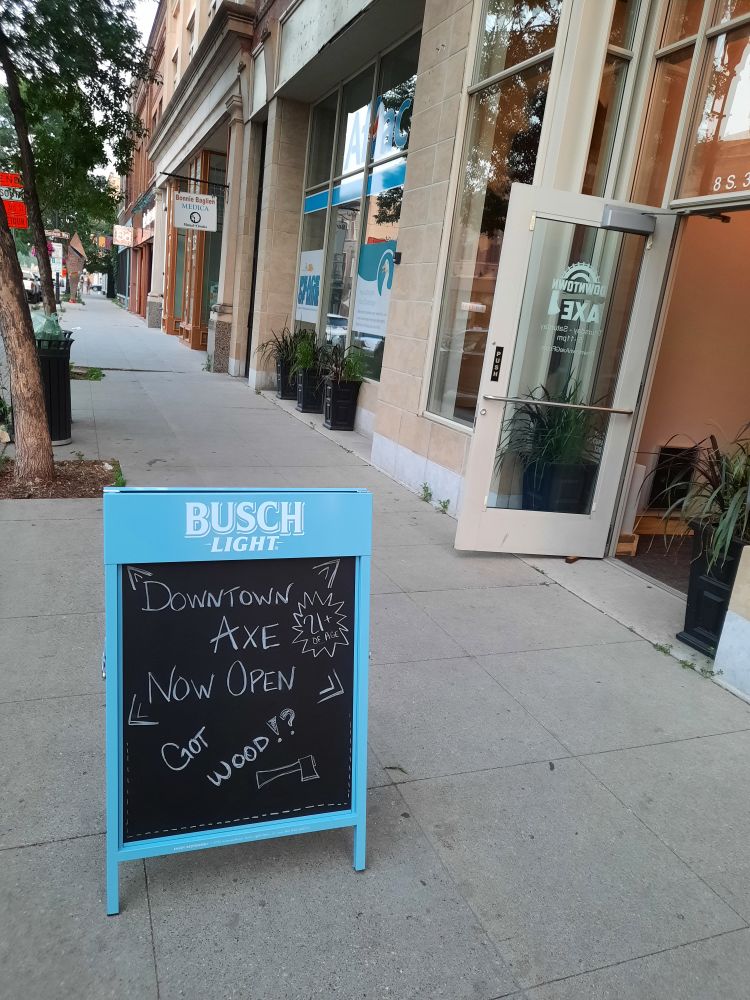 BUSCH
LIGHT
DOWNTOWN
AXE
21+
OF AGE
NOW OPEN
GOT
WOOD!?
Bonnie Baglien
MEDICA
Aflac
8 S. 3
DOWNTOWN
AXE
Thursday - Saturday
PUSH